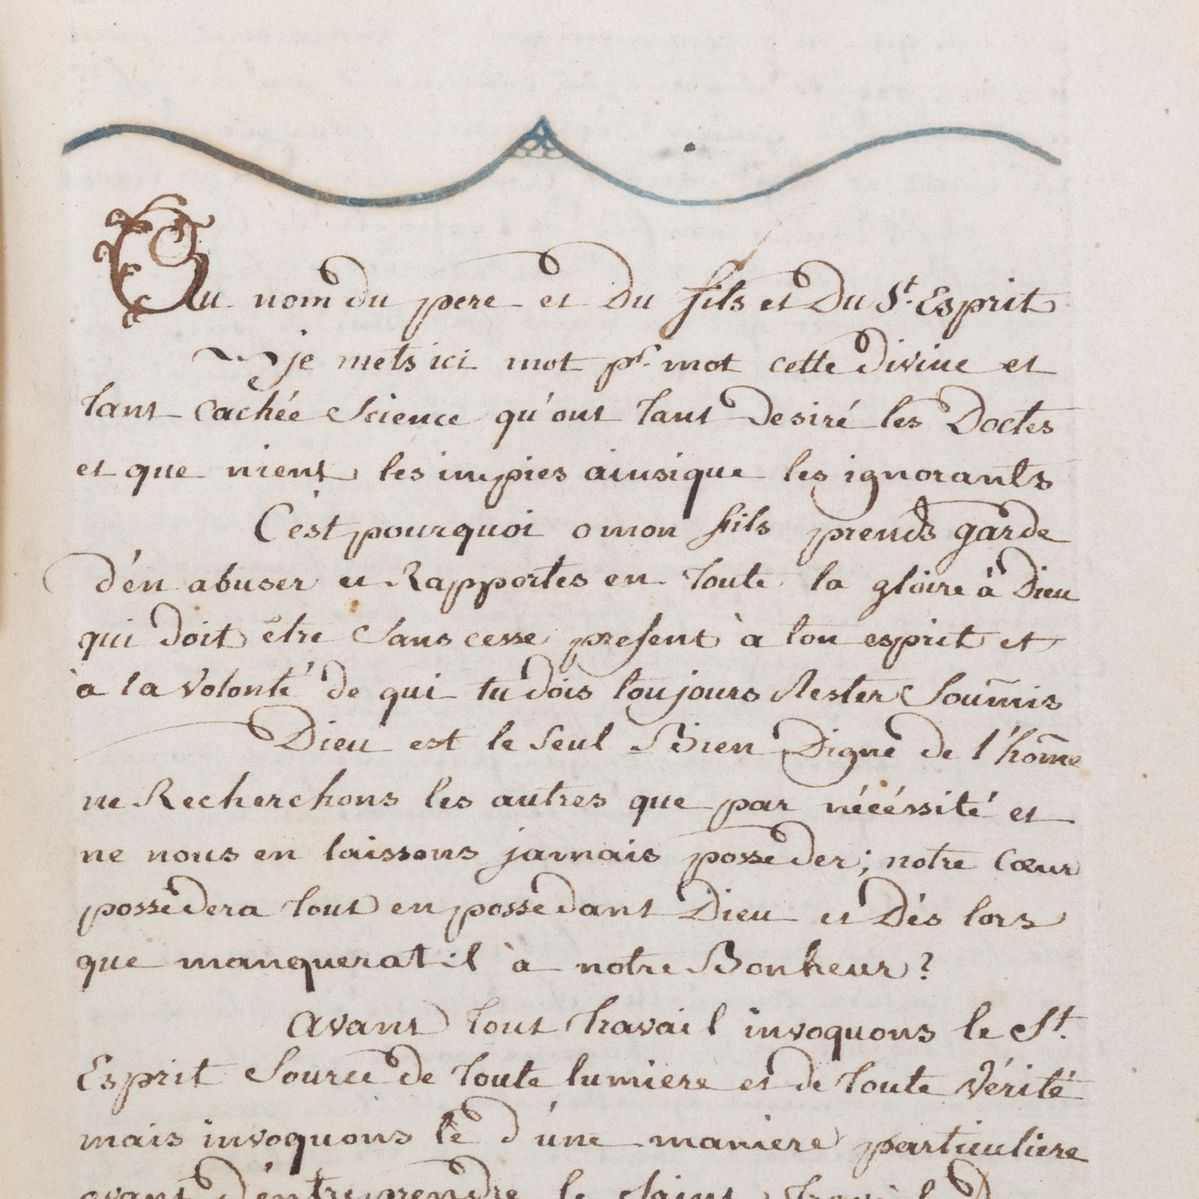 Au nom du pere et du fils et du St. Esprit
je mets ici mot pr. mot cette divine et
tant cachée Science qu'ont tant desiré les Doctes
et que nient les impies ainsi que les ignorants
C'est pourquoi o mon fils prends garde
d'én abuser et Rapportes en toute la gloire à Dieu
qui doit être sans cesse present à ton esprit et
à la volonté de qui tu dois toujours Rester Soum̄is
Dieu est le seul Bien Digne de l'hom̄e
ne Recherchons les autres que par nécéssité et
ne nous en laissons jamais posseder; notre Cœur
possèdera tout en possedant Dieu et Dés lors
que manquerat il à notre Bonheur?
avant tout travail invoquons le St.
Esprit Source de toute lumiere et de toute Vérité
mais invoquons lè d'une maniere particuliere
avant d'éntreprendre le Saint travail D